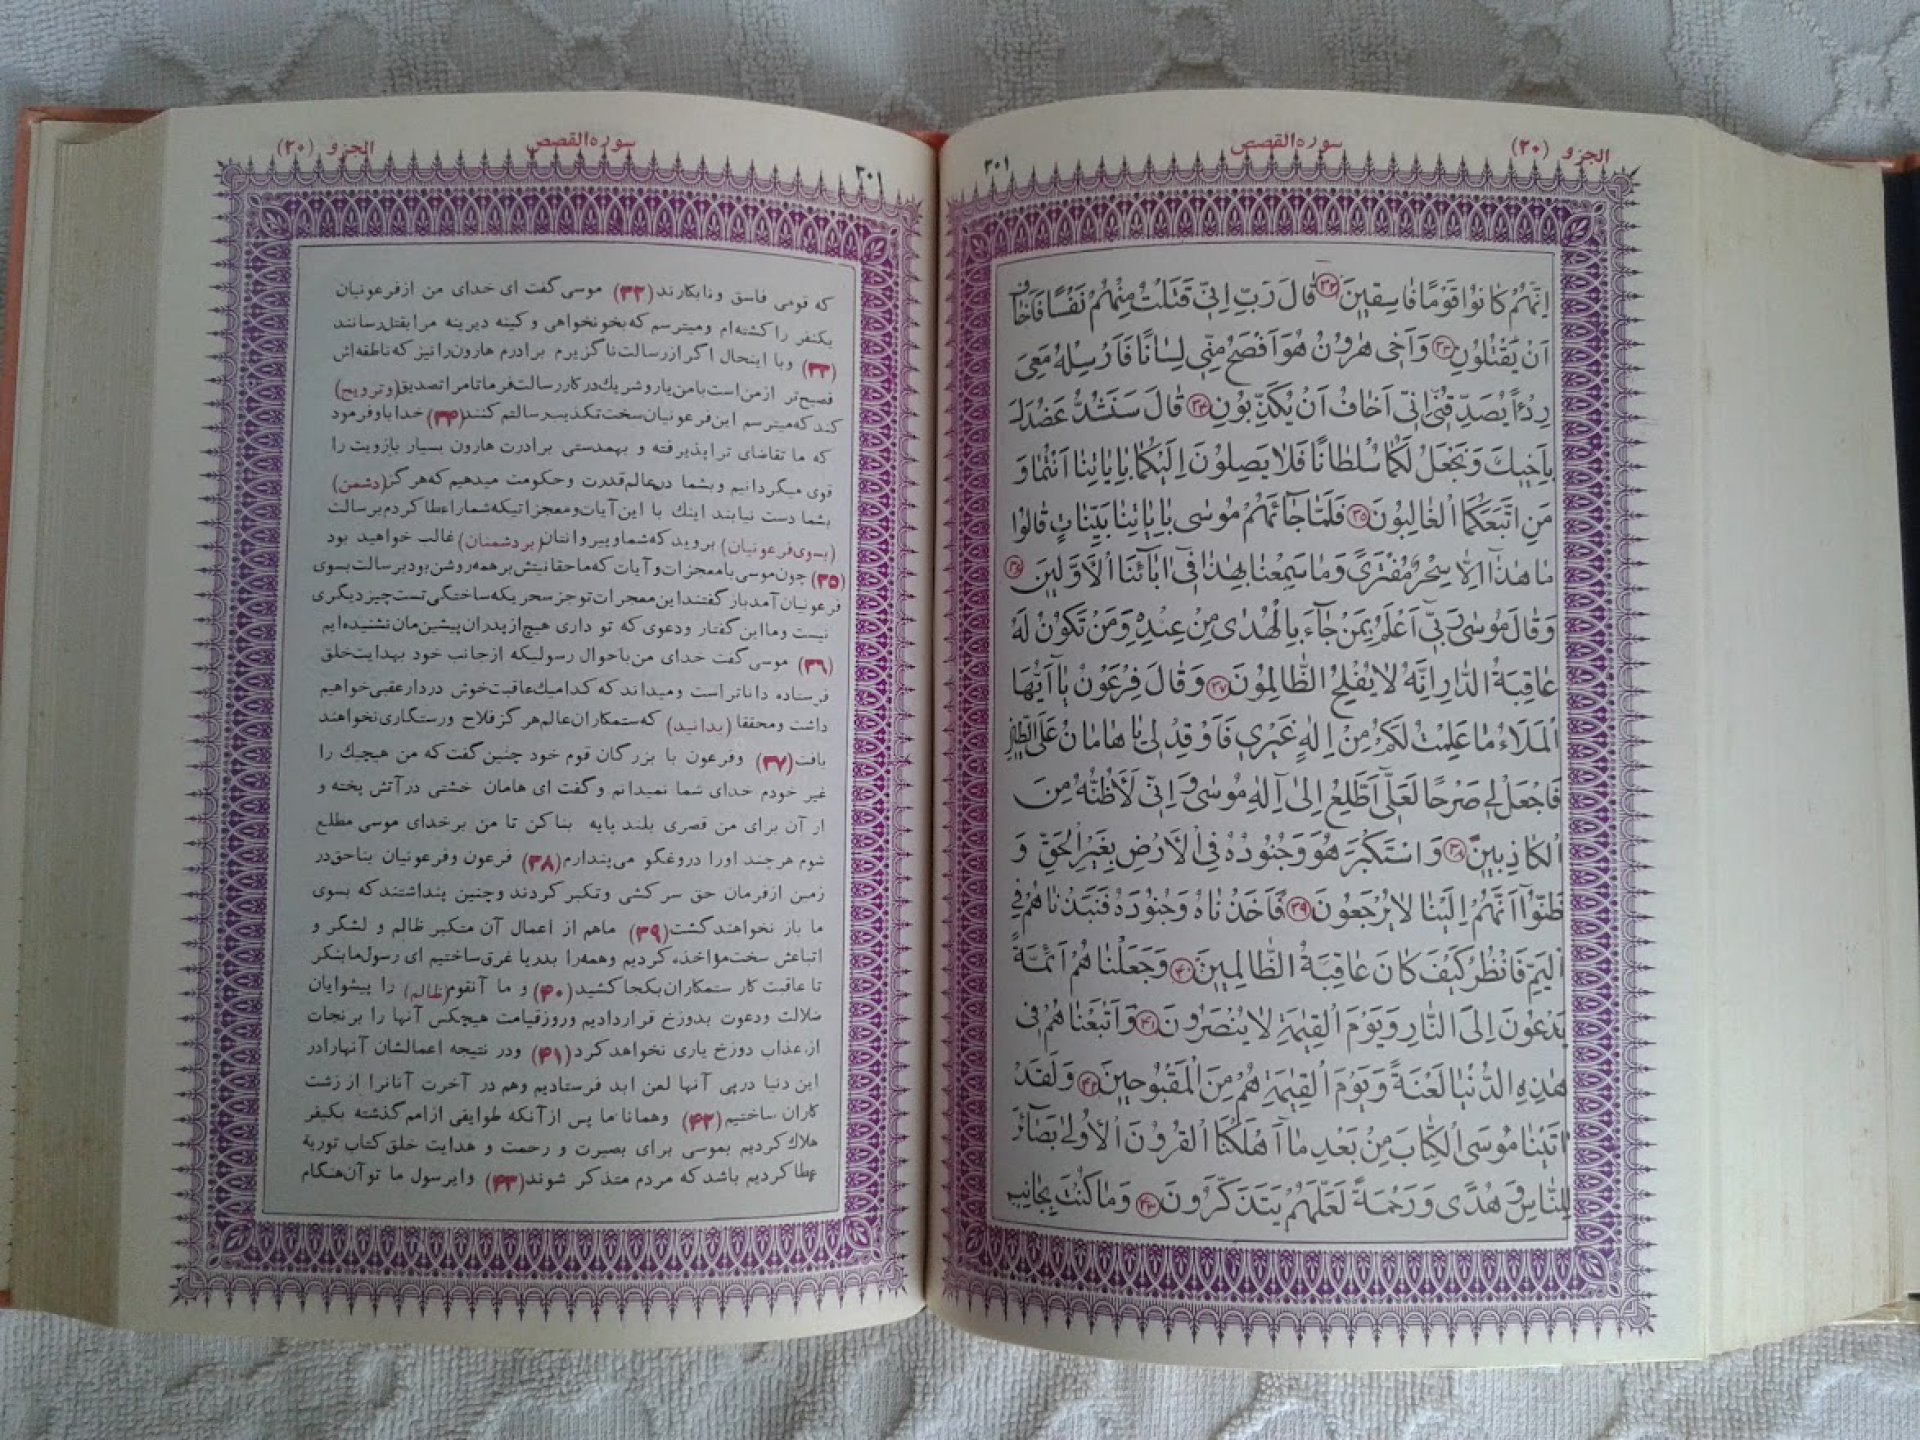 الجزو (۲۰)
سورة القصص
۳۰۱
اِنَّهُمْ كانُوا قَوْمًا فاسِقينَ ۳۲ قالَ رَبِّ اِنّى قَتَلْتُ مِنْهُمْ نَفْسًا فَاَخافُ
اَنْ يَقْتُلُونِ ۳۳ وَاَخى هٰرُونُ هُوَ اَفْصَحُ مِنّى لِسانًا فَاَرْسِلْهُ مَعِىَ
رِدْءًا يُصَدِّقُنى اِنّى اَخافُ اَنْ يُكَذِّبُونِ ۳۴ قالَ سَنَشُدُّ عَضُدَكَ
بِاَخيكَ وَ نَجْعَلُ لَكُما سُلْطانًا فَلا يَصِلُونَ اِلَيْكُما بِاٰياتِنا اَنْتُما وَ
مَنِ اتَّبَعَكُمَا الْغالِبُونَ ۳۵ فَلَمّا جآئَهُمْ مُوسى بِاٰياتِنا بَيِّناتٍ قالُوا
ما هٰذا اِلّا سِحْرٌ مُفْتَرًى وَما سَمِعْنا بِهٰذا فى اٰبآئِنَا الْاَوَّلينَ ۳۶
وَ قالَ مُوسى رَبّى اَعْلَمُ بِمَنْ جآءَ بِالْهُدٰى مِنْ عِنْدِهِ وَمَنْ تَكُونُ لَهُ
عاقِبَةُ الدّارِ اِنَّهُ لا يُفْلِحُ الظّالِمُونَ ۳۷ وَ قالَ فِرْعَوْنُ يآ اَيُّهَا
الْمَلَاءُ ما عَلِمْتُ لَكُمْ مِنْ اِلٰهٍ غَيْرى فَاَوْقِدْ لى يا هامانُ عَلَى الطّينِ
فَاجْعَلْ لى صَرْحًا لَعَلّى اَطَّلِعُ اِلٰى اِلٰهِ مُوسٰى وَ اِنّى لَاَظُنُّهُ مِنَ
الْكاذِبينَ ۳۸ وَ اسْتَكْبَرَ هُوَ وَ جُنُودُهُ فِى الْاَرْضِ بِغَيْرِ الْحَقِّ وَ
ظَنُّوا اَنَّهُمْ اِلَيْنا لا يُرْجَعُونَ ۳۹ فَاَخَذْناهُ وَ جُنُودَهُ فَنَبَذْناهُمْ فِى
الْيَمِّ فَانْظُرْ كَيْفَ كانَ عاقِبَةُ الظّالِمينَ ۴۰ وَ جَعَلْناهُمْ اَئِمَّةً
يَدْعُونَ اِلَى النّارِ وَ يَوْمَ الْقِيٰمَةِ لا يُنْصَرُونَ ۴۱ وَ اَتْبَعْناهُمْ فى
هٰذِهِ الدُّنْيا لَعْنَةً وَ يَوْمَ الْقِيٰمَةِ هُمْ مِنَ الْمَقْبُوحينَ ۴۲ وَ لَقَدْ
اٰتَيْنا مُوسَى الْكِتابَ مِنْ بَعْدِ ما اَهْلَكْنَا الْقُرُونَ الْاُولٰى بَصآئِرَ
لِلنّاسِ وَ هُدًى وَ رَحْمَةً لَعَلَّهُمْ يَتَذَكَّرُونَ ۴۳ وَ ما كُنْتَ بِجانِبِ
الجزو (۲۰)
سورة القصص
۳۰۱
که قومی فاسق ونابکارند (۳۲) موسی گفت ای خدای من ازفرعونیان
یکنفر را کشته‌ام ومیترسم که بخونخواهی و کینه دیرینه مرا بقتل رسانند
(۳۳) وبا اینحال اگر ازرسالت ناگزیرم برادرم هارون را نیز که ناطقه‌اش
فصیح تر ازمن است بامن یار و شریك در کار رسالت فرما تا مرا تصدیق (وترویج)
کند که میترسم این فرعونیان سخت تکذیب رسالتم کنند (۳۴) خدا باو فرمود
که ما تقاضای ترا پذیرفته و بهمدستی برادرت هارون بسیار بازویت را
قوی میگردانیم وبشما درعالم قدرت وحکومت میدهیم که هرگز (دشمن)
بشما دست نیابند اینك با این آیات ومعجزاتیکه شما را عطا کردم برسالت
(بسوی فرعونیان) بروید که شما وپیروانتان (بردشمنان) غالب خواهید بود
(۳۵) چون موسی با معجزات وآیات که ما حقانیتش بر همه روشن بود برسالت بسوی
فرعونیان آمد باز گفتند این معجرات تو جز سحریکه ساختگی تست چیز دیگری
نیست وما این گفتار ودعوی که تو داری هیچ از پدران پیشین مان نشنیده ایم
(۳۶) موسی گفت خدای من باحوال رسولیکه ازجانب خود بهدایت خلق
فرستاده داناتر است ومیداند که کدام یك عاقبت خوش در دار عقبی خواهیم
داشت ومحققا (بدانید) که ستمکاران عالم هرگز فلاح ورستگاری نخواهند
یافت (۳۷) وفرعون با بزرگان قوم خود چنین گفت که من هیچیك را
غیر خودم خدای شما نمیدانم وگفت ای هامان خشتی درآتش پخته و
از آن برای من قصری بلند پایه بنا کن تا من بر خدای موسی مطلع
شوم هرچند اورا دروغگو می پندارم (۳۸) فرعون وفرعونیان بناحق در
زمین ازفرمان حق سرکشی وتکبر کردند وچنین پنداشتند که بسوی
ما باز نخواهند گشت (۳۹) ماهم از اعمال آن متکبر ظالم و لشگر و
اتباعش سخت مؤاخذه کردیم وهمه را بدریا غرق ساختیم ای رسول ما بنگر
تا عاقبت کار ستمکاران بکجا کشید (۴۰) و ما آنقوم (ظالم) را پیشوایان
ضلالت ودعوت بدوزخ قرار دادیم وروز قیامت هیچکس آنها را بر نجات
از عذاب دوزخ یاری نخواهد کرد (۴۱) ودر نتیجه اعمالشان آنهارا در
این دنیا درپی آنها لعن ابد فرستادیم وهم در آخرت آنانرا از زشت
کاران ساختیم (۴۲) وهمانا ما پس از آنکه طوایفی از امم گذشته بکیفر
هلاك کردیم بموسی برای بصیرت و رحمت و هدایت خلق کتاب توریة
عطا کردیم باشد که مردم متذکر شوند (۴۳) وای رسول ما تو آن هنگام